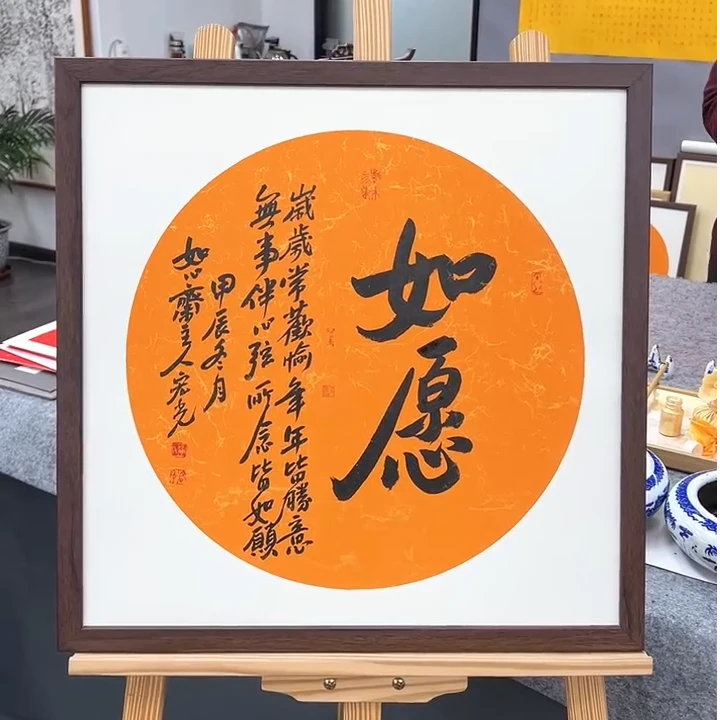 如愿
歲歲常歡愉年年皆勝意
無事伴心弦所念皆如願
甲辰冬月
如心齋主人宏光